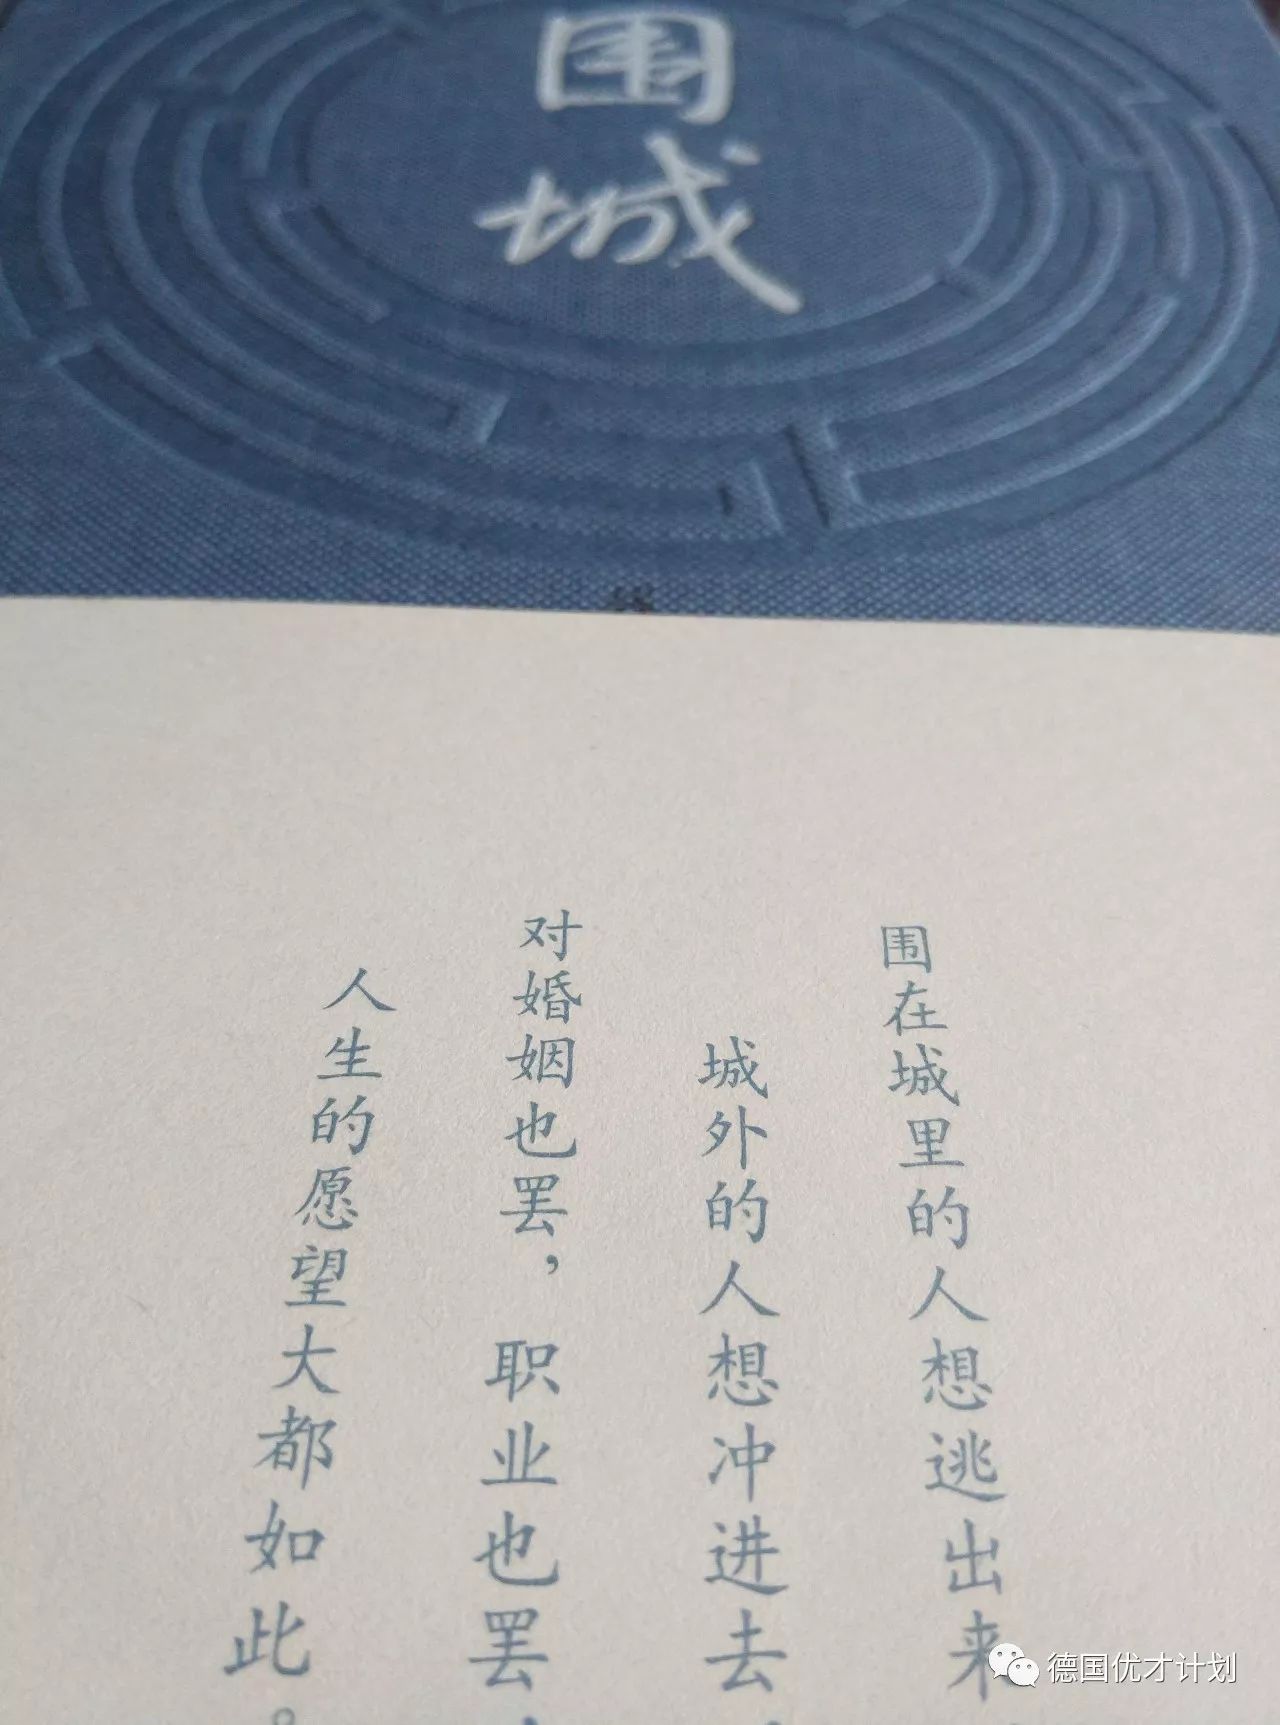 围
城
围在城里的人想逃出来
城外的人想冲进去，
对婚姻也罢，职业也罢，
人生的愿望大都如此。
德国优才计划